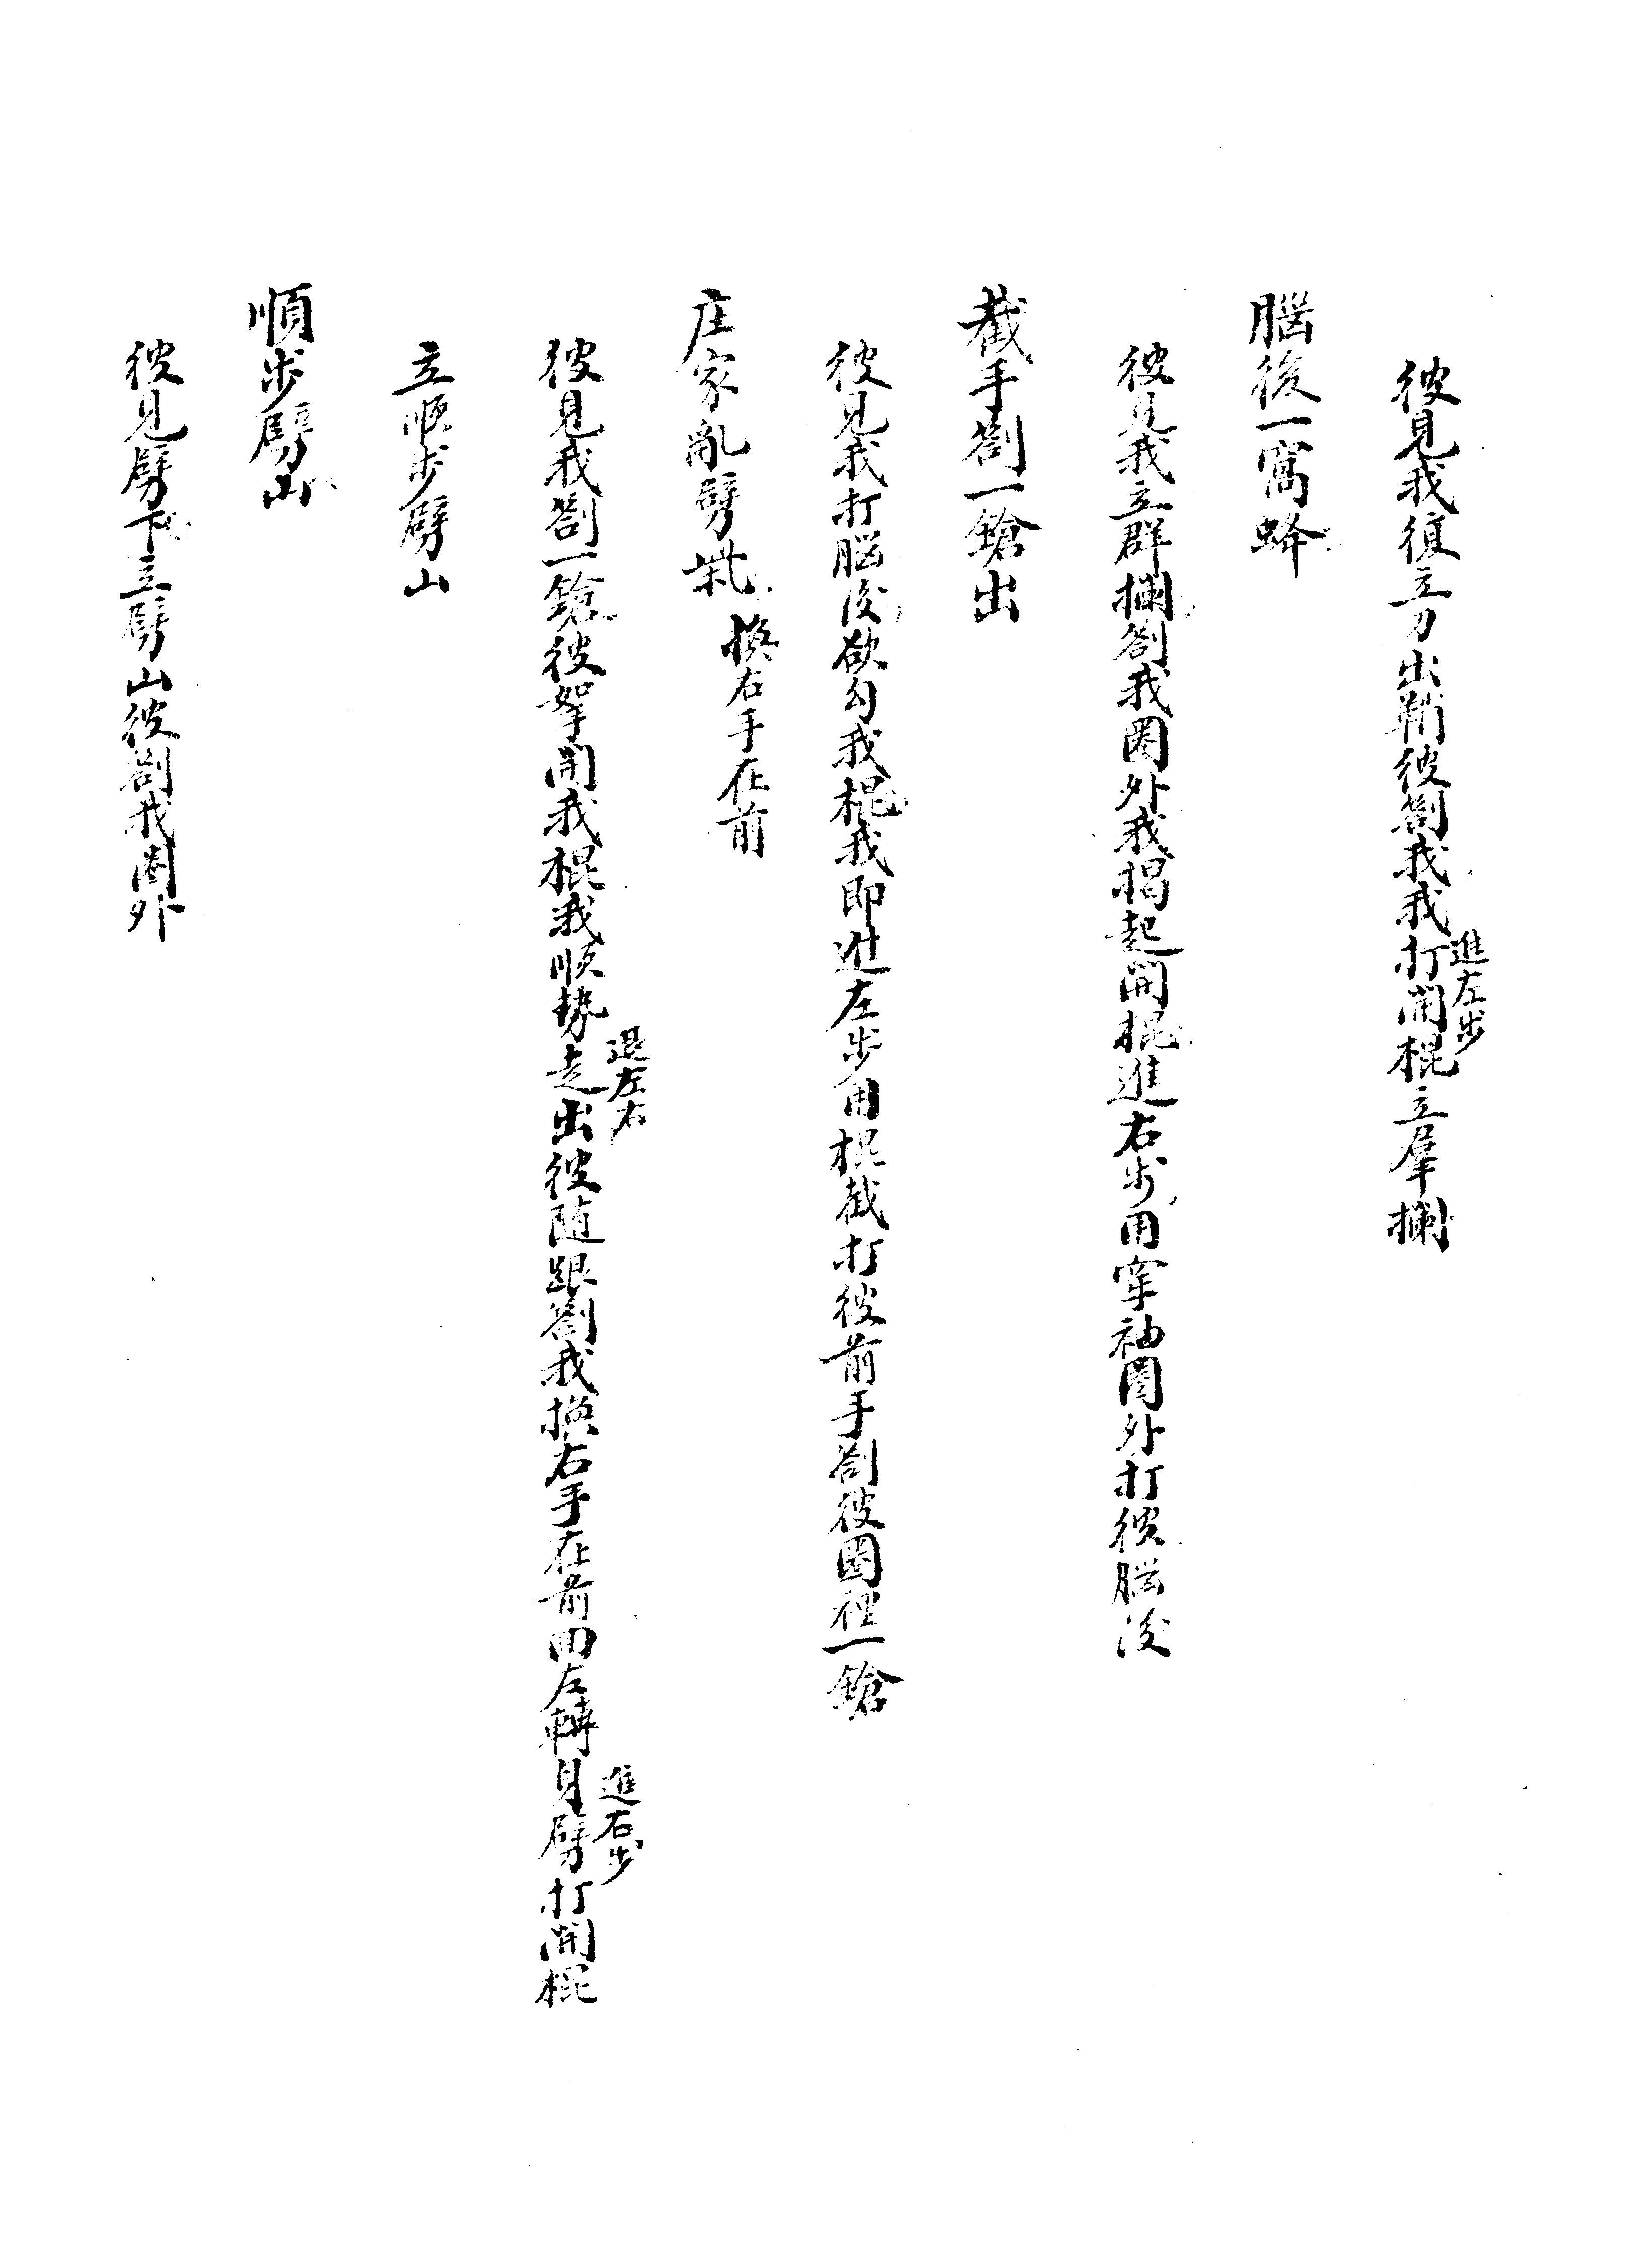 彼見我復立刀出鞘彼劄我我打開棍立羣攔
進左步
腦後一窩蜂
彼見我立群攔劄我圈外我揭起開棍進右步用穿袖圈外打彼腦後
截手劄一鎗出
彼見我打腦後欲勾我棍我即進左步用棍截打彼前手劄彼圈裡一鎗
庄家亂劈柴 換右手在前
彼見我劄一鎗彼拏開我棍我順勢走出彼随跟劄我換右手在前由左轉身劈打開棍
退左右
進右步
立順步劈山
順步劈山
彼見劈下立劈山彼劄我圈外